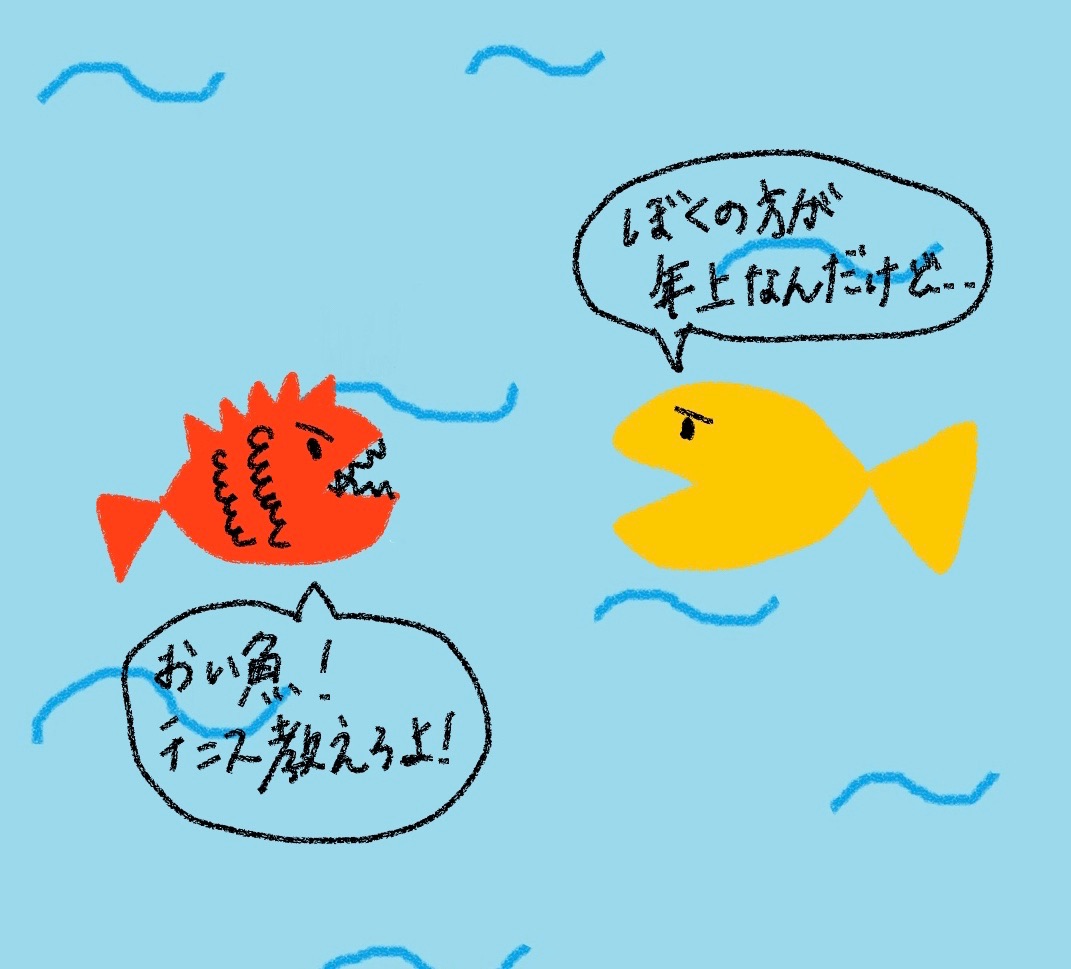 ぼくの方が
年上なんだけど…
おい魚!
テニス教えろよ!